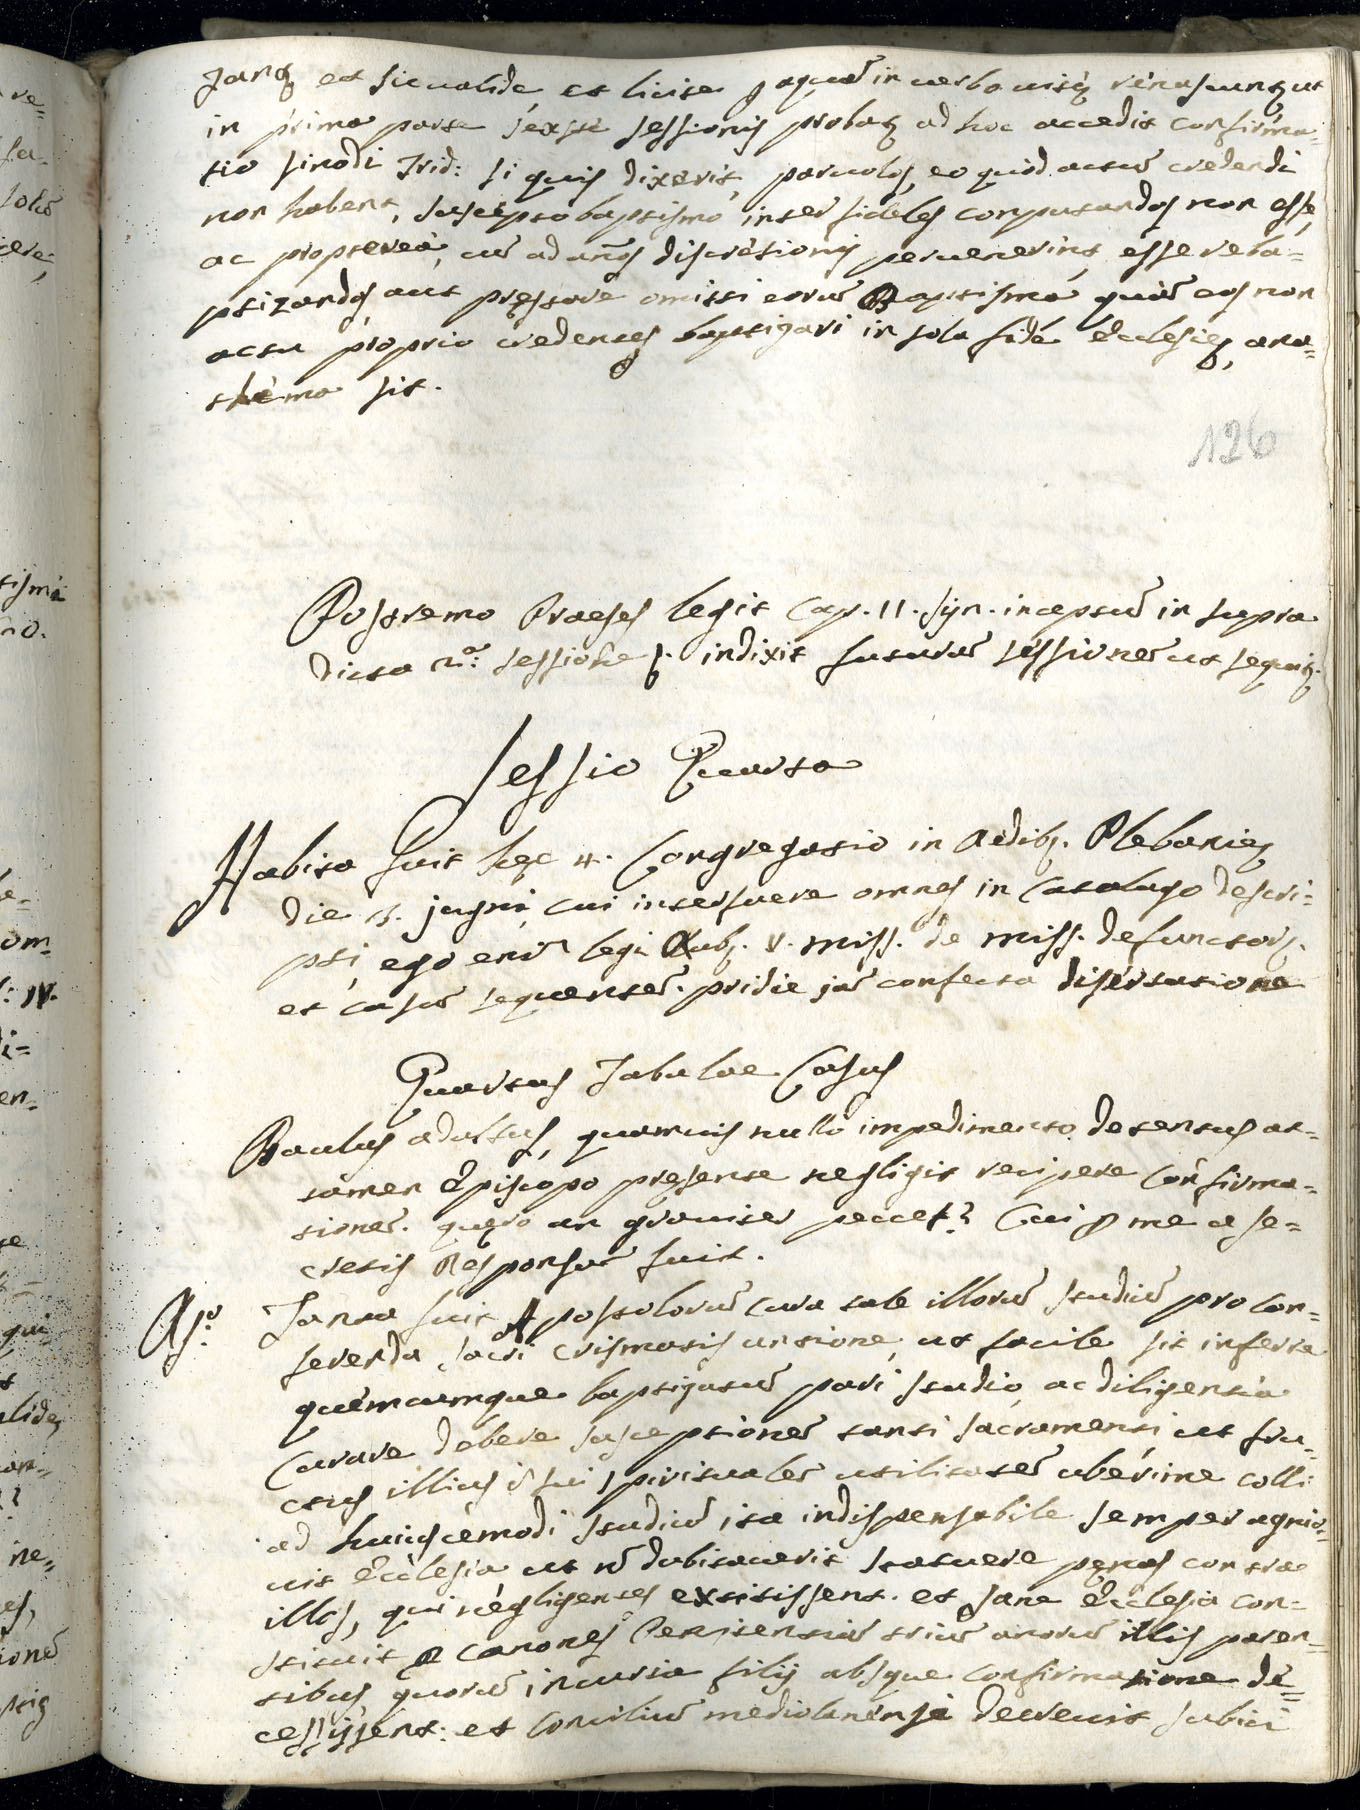 Janq et sic valide et licite p aquam in verbo vitę renascunt ut
in prima parte sextę sessionis probaq ad hoc accedit confirma=
tio sinodi Trid: si quis dixerit, parvulos, eo quod actum credendi
non habent, suscepto baptismo inter fideles computandos non esse,
ac propterea, cum ad annos discretionis pervenerint, esse reba=
ptizandos, aut pręstare omitti eorum Baptismá quám eos non
actu proprio credentes baptizari in sola fidé Ecclesię, ana=
théma sit.
126
Postremo Praeses legit Cap. 11. syn. inceptum in supra
dicta sessione indixit futuram sessionem ut sequit.
Sessio Quarta
Habita fuit hęc 4. Congregatio in Aedib. Plebanię
die 13. jugni, cui interfuere omnes in Catalogo descri=
pti, ego enim legi Rub. V. miss. de miss. defunctor.
et casum sequentem. pridie jam confecta disertatione
Quartus Tabulae Casus
Paulus adultus, quamvis nullo impedimento detentus at=
tamen Episcopo pręsente negligit recipere Confirma=
tionem. quęro an graviter peccet? Cui p me a se=
cretis Responsum fuit.
Tanta fuit Apostolorum cura tale illorum studium pro con=
ferenda sacri crismatis untione, ut facile sit inferre
quémcumque baptizatum pari studio, ac diligentia
Curare debere susceptionem tanti sacramenti ut fru=
ctus illius spiritualem utilitatem ubérime colli
ad huiuscemodi studium ita indispensabile semper agno=
vit Ecclesia ut nō dubitaverit statuere pęnas contra
illos, qui négligentes extitissent. et sane Ecclesia con=
stituit canones Penitentiam trium annorum illis paren=
tibus, quorum incuria filij absque confirmatione de=
cessissent: et concilium mediolanense decrevit subici